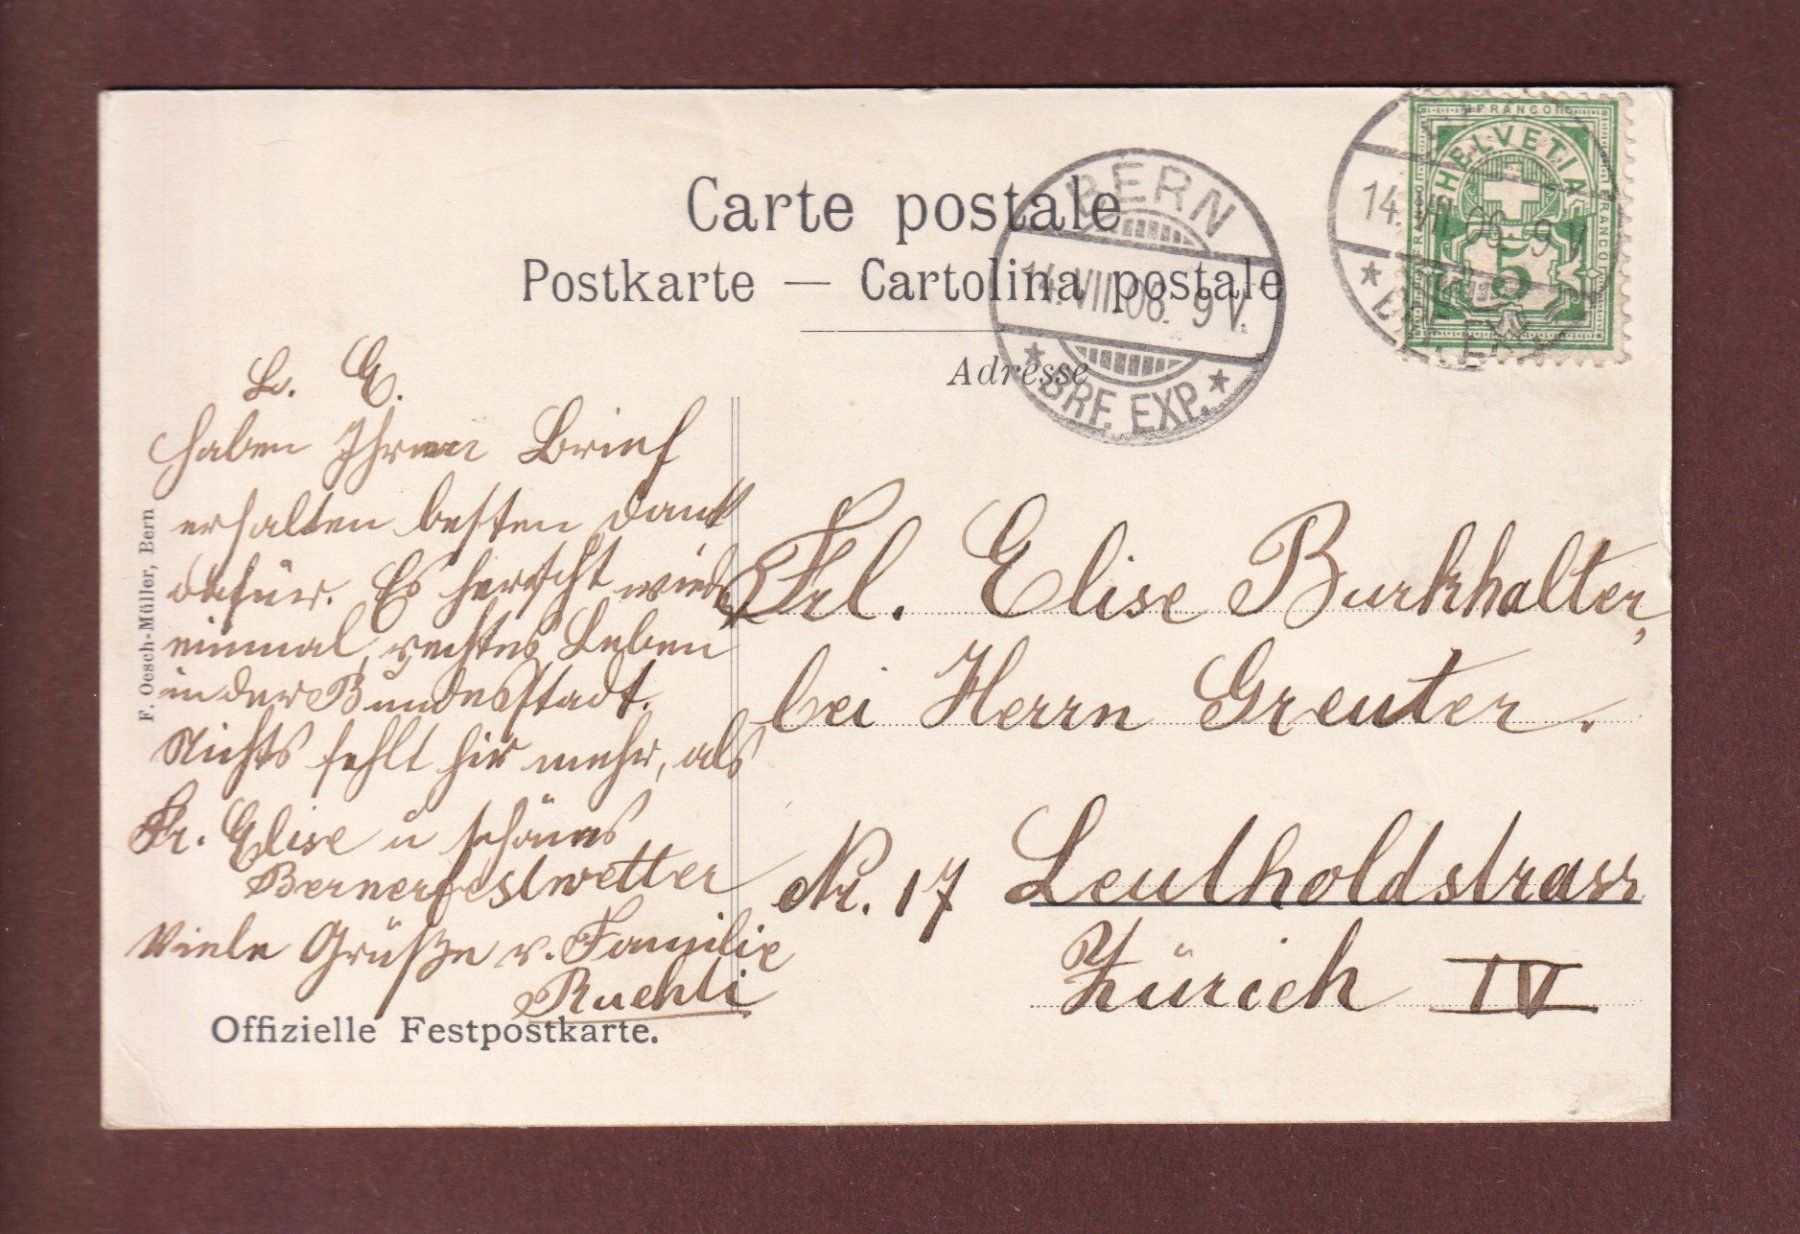 Carte postale
Postkarte — Cartolina postale
Adresse
FRANCO
HELVETIA
FRANCO
5
14.VII.06. 9 V.
BERN
14.VII.06. 9 V.
★ BRF. EXP. ★
L. E.
haben Ihren Brief
erhalten besten Dank
dafür. Es herscht wieder
einmal rechtes Leben
in der Bundesstadt.
Nichts fehlt hir mehr, als
Fr. Elise u schönes
Bernerfestwetter
Viele Grüße v. Familie
Ruehti
Frl. Elise Burkhalter,
bei Herrn Greuter.
Nr. 17 Leutholdstrasse
Zürich IV
Offizielle Festpostkarte.
F. Oesch-Müller, Bern